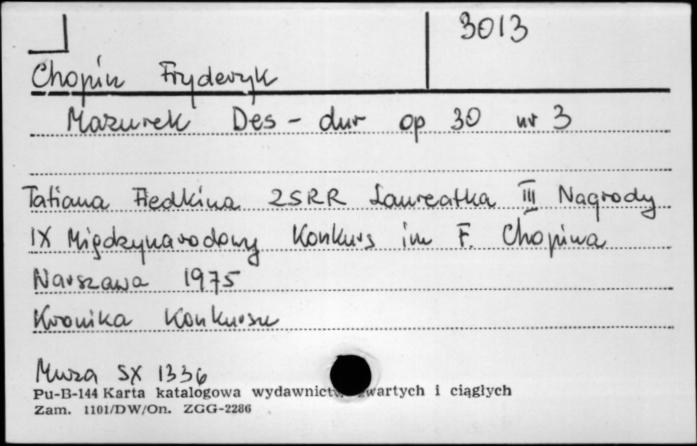 3013
Chopin Fryderyk
Mazurek Des-dur op 30 nr 3
Tatiana Fiedkina ZSRR Laureatka III Nagrody
IX Międzynarodowy Konkurs im F. Chopina
Warszawa 1975
Kronika Konkursu
Muza SX 1336
Pu-B-144 Karta katalogowa wydawnictw zwartych i ciągłych
Zam. 1101/DW/On. ZGG-2286